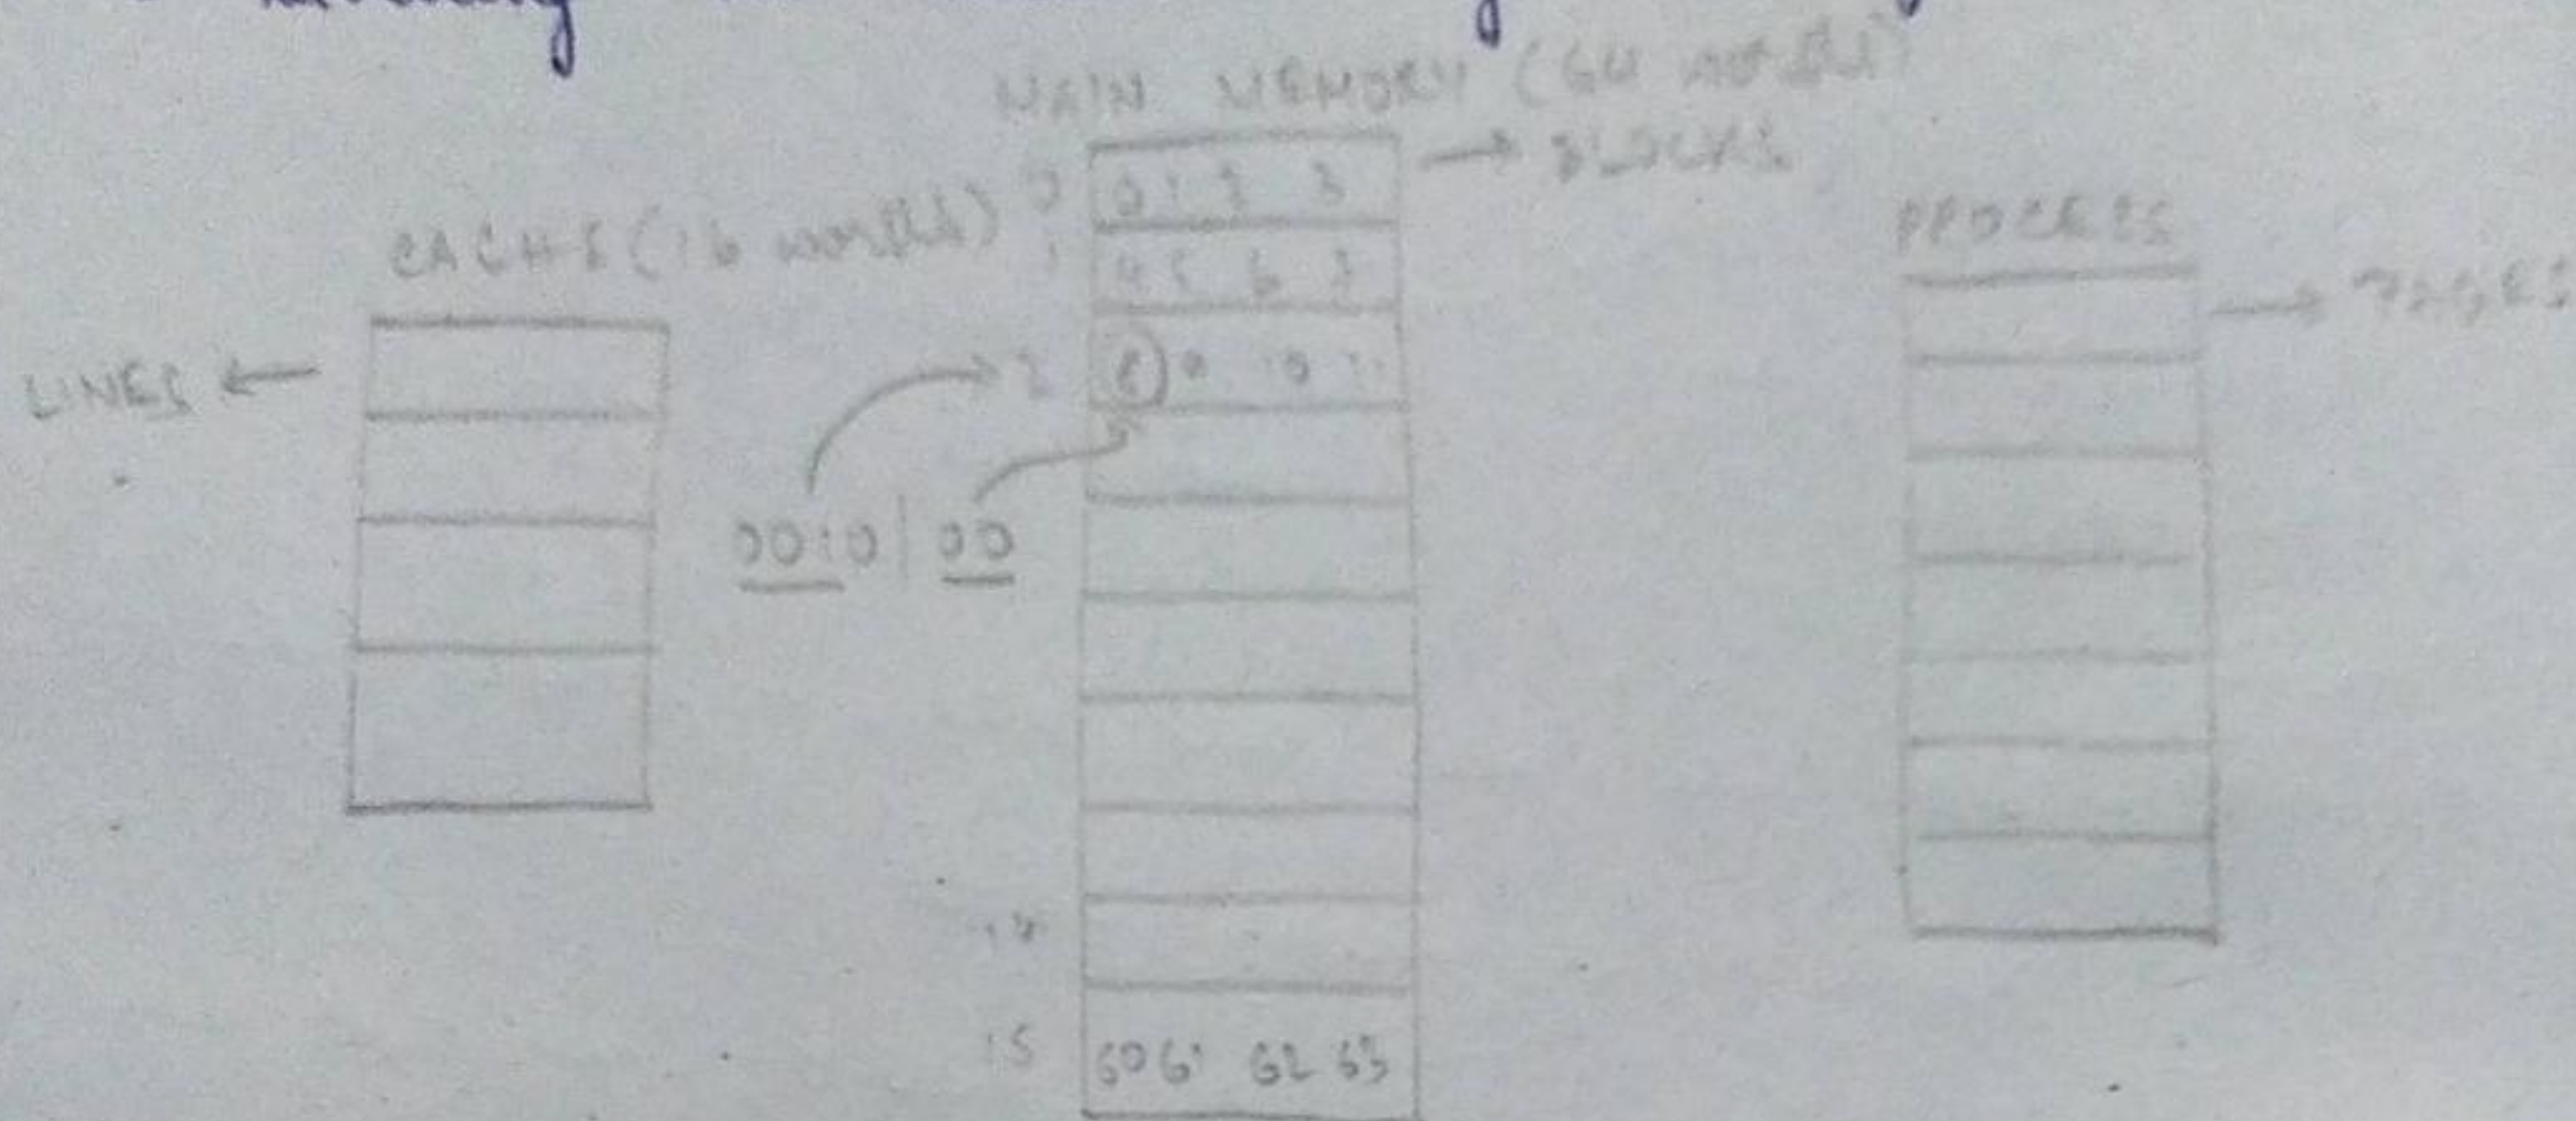 MAIN MEMORY (64 words)
→ BLOCKS
CACHE (16 words)
PROCESS
→ PAGES
LINES ←
0 0 1 2 3
1 4 5 6 7
2 8 9 10 11
0010 | 00
14
15 60 61 62 63